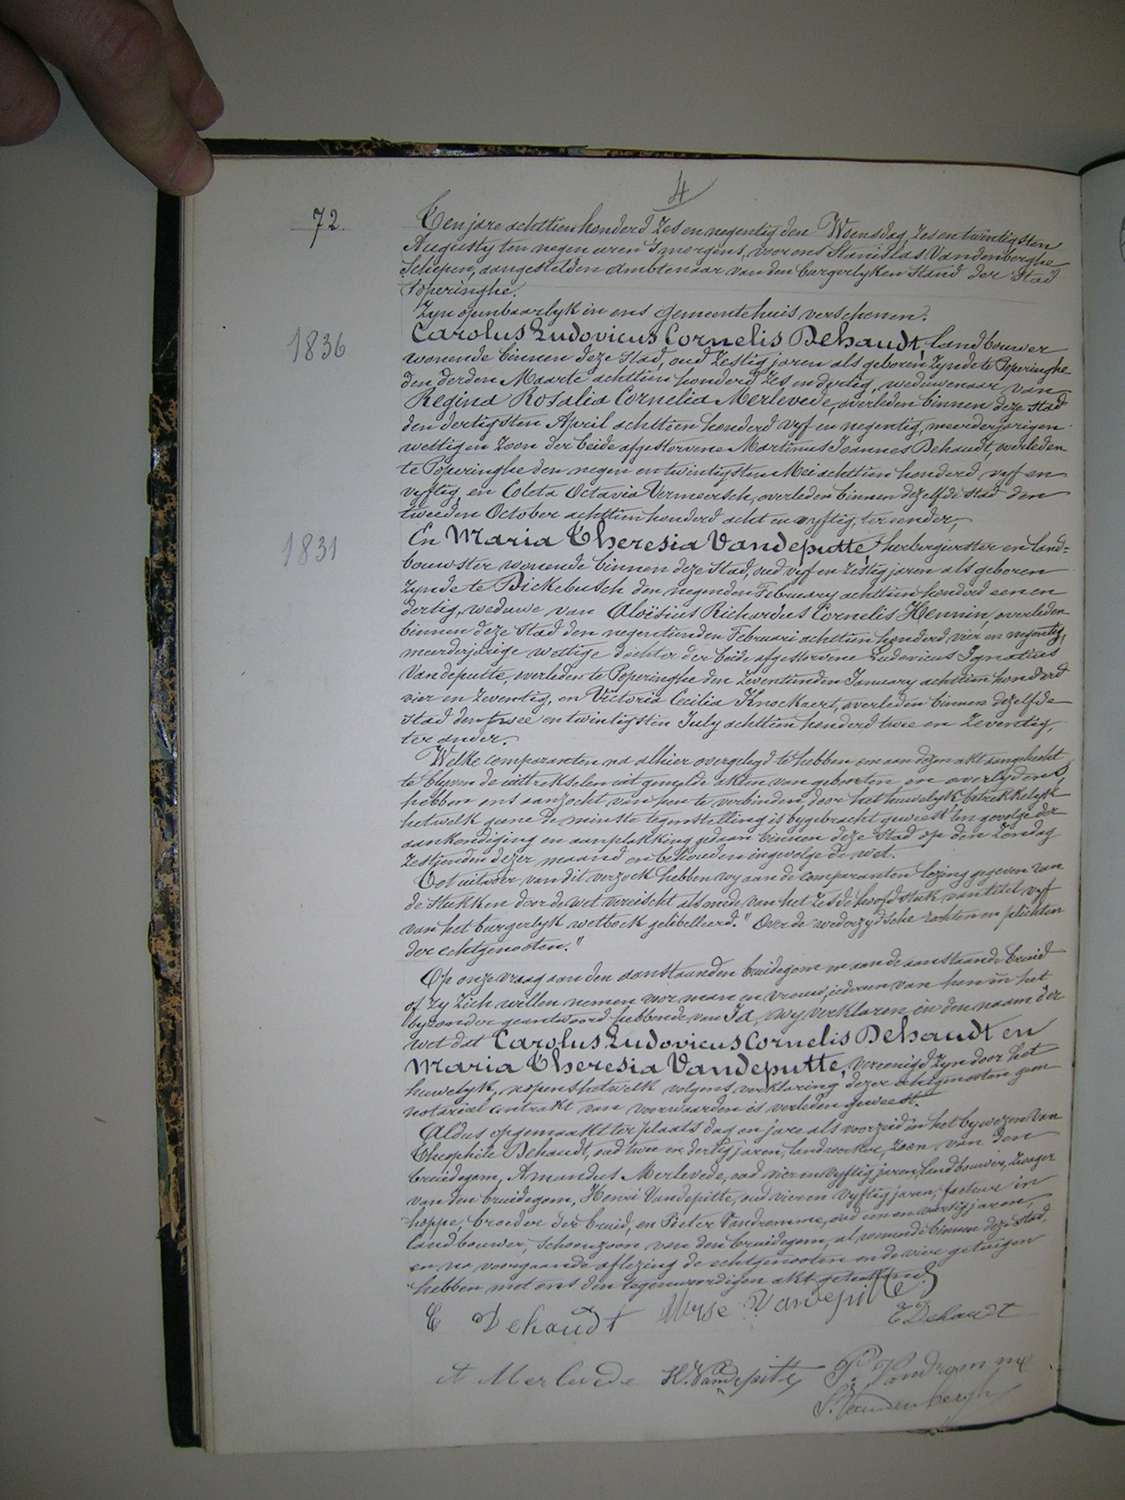 4
72.
Ten jare achttien honderd zes en negentig den Woensdag, zes en twintigsten
Augusty ten negen uren 's morgens, voor ons Stanislas Vandenberghe
Schepen, aangestelden ambtenaar van den burgerlyken Stand der Stad
Poperinghe.
Zyn openbaarlyk in ons gemeentehuis verschenen:
1836
Carolus Ludovicus Cornelis Dehaudt, landbouwer
wonende binnen deze Stad, oud zestig jaren als geboren zynde te Poperinghe
den derden Maarte achttien honderd zes en dertig, weduwenaar van
Regina Rosalia Cornelia Merlevede, overleden binnen deze stad
den dertigsten April achttien honderd vyf en negentig, meerderjarigen
wettigen Zoon der beide afgestorvene Martinus Joannes Dehaudt, overleden
te Poperinghe den negen en twintigsten Mei achttien honderd vyf en
vyftig, en Coleta Octavia Vermeersch, overleden binnen dezelfde stad den
tweeden October achttien honderd acht en vyftig, ter eender,
1831
En Maria Theresia Vandeputte, herbergierster en land=
bouwster wonende binnen deze Stad, oud vyf en zestig jaren als geboren
zynde te Dickebusch den negenden February achttien honderd een en
dertig, weduwe van Aloïsius Richardus Cornelis Hennin, overleden
binnen deze stad den negentienden Februari achttien honderd vier en negentig,
meerderjarige wettige dochter der beide afgestorvene Ludovicus Ignatius
Vandeputte, overleden te Poperinghe den zeventienden January achttien honderd
vier en zeventig, en Victoria Cecilia Knockaert, overleden binnen dezelfde
stad den twee en twintigsten July achttien honderd twee en zeventig,
ter ander.
Welke comparanten na alhier overgelegd te hebben om aan dezen akt aangehecht
te blyven de uittrekselen uit gemelde akten van geboorten en overlydens,
hebben ons aanzocht van hun te verbinden door het huwelyk betrekkelyk
hetwelk geene de minste tegenstelling is bygebracht geweest ten gevolge der
aankondiging en aanplakking gedaan binnen deze stad op den Zondag
zestienden dezer maand en behouden ingevolge de wet.
Tot uitvoer van dit verzoek hebben wy aan de comparanten lezing gegeven van
de stukken door de wet vereischt alsmede van het zesde hoofdstuk van titel vyf
van het burgerlyk wetboek gelibelleerd: "Over de wederzydsche rechten en plichten
der echtgenooten."
Op onze vraag aan den aanstaanden bruidegom en aan de aanstaande bruid
of zy zich willen nemen voor man en vrouw, iedereen van hen in het
byzonder geantwoord hebbende van Ja, wy verklaren in den naam der
wet dat Carolus Ludovicus Cornelis Dehaudt en
Maria Theresia Vandeputte, vereenigd zyn door het
huwelyk, nopens hetwelk volgens verklaring dezer echtgenooten geen
notariaal contrakt van voorwaarden is verleden geweest.
Aldus opgemaakt ter plaats dag en jare als voorzeid in het bywezen van
Theophile Dehaudt, oud twee en dertig jaren, landwerker, zoon van den
bruidegom, Amandus Merlevede, oud vier en vyftig jaren, landbouwer, zwager
van den bruidegom, Henri Vandepitte, oud vier en vyftig jaren, facteur in
hoppe, broeder der bruid, en Pieter Vandromme, oud een en veertig jaren,
landbouwer, schoonzoon van den bruidegom, al wonende binnen deze stad,
en na voorgaande aflezing de echtgenooten en de vier getuigen
hebben met ons den tegenwoordigen akt geteekend.
C Dehaudt Vandepitte T Dehaudt
A Merlevede H. Vandepitte P. Vandromme
S. Vandenberghe